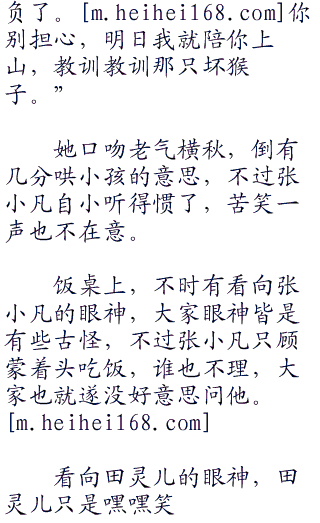 负了。[m.heihei168.com]你
别担心，明日我就陪你上
山，教训教训那只坏猴
子。”
她口吻老气横秋，倒有
几分哄小孩的意思，不过张
小凡自小听得惯了，苦笑一
声也不在意。
饭桌上，不时有看向张
小凡的眼神，大家眼神皆是
有些古怪，不过张小凡只顾
蒙着头吃饭，谁也不理，大
家也就遂没好意思问他。
[m.heihei168.com]
看向田灵儿的眼神，田
灵儿只是嘿嘿笑